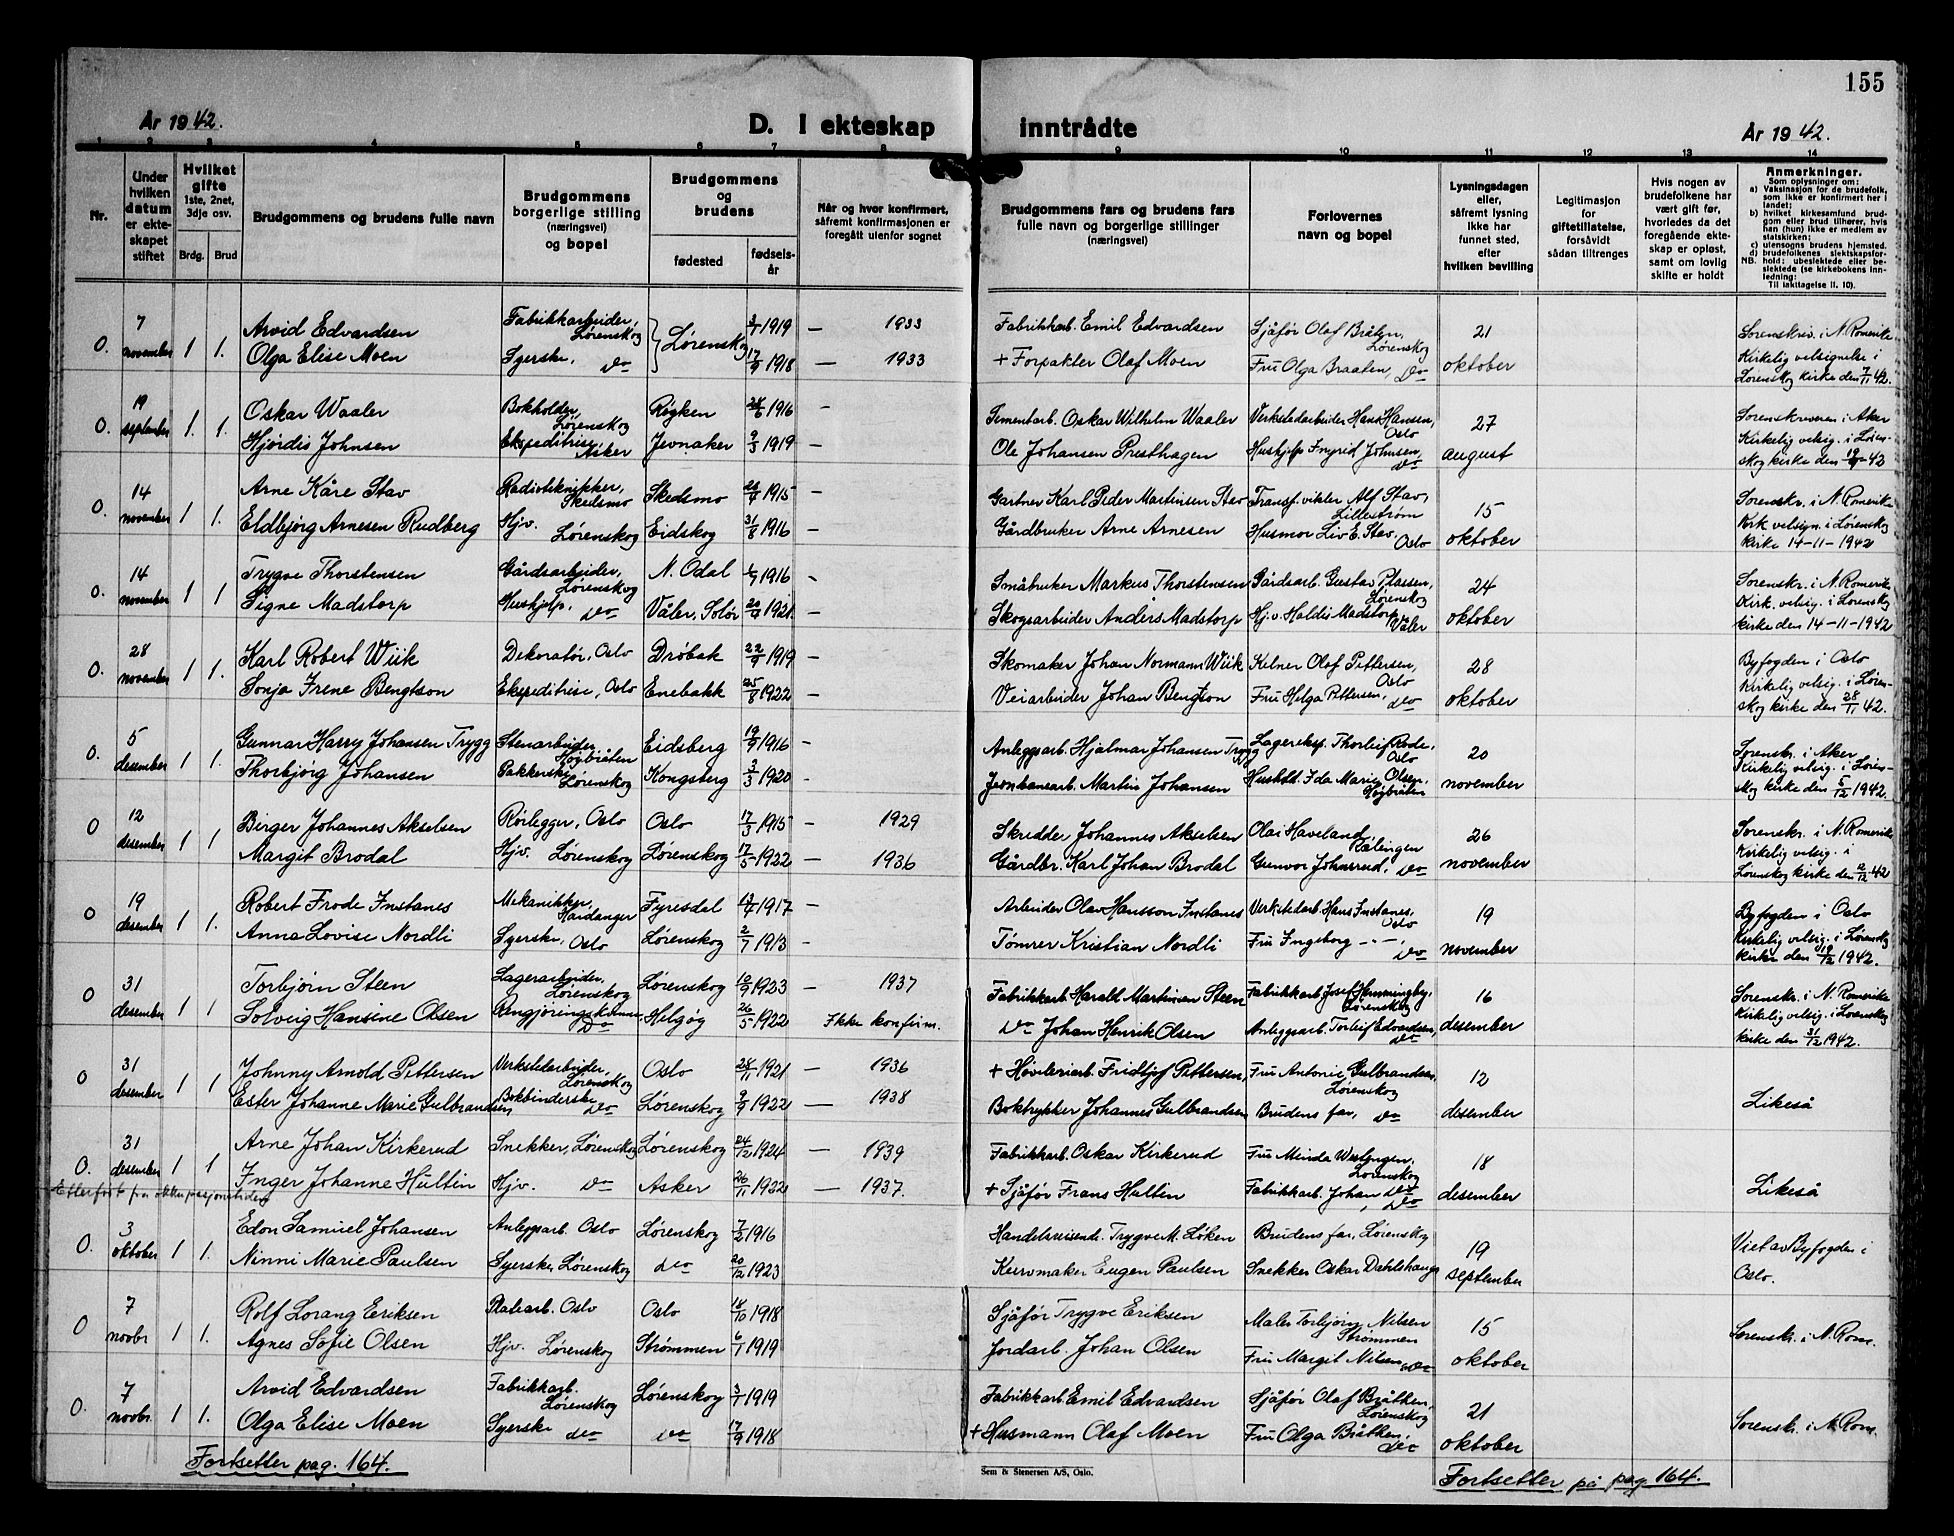 155
År 1942.
D. I ekteskap inntrådte
År 1942.
1 2 3 4 5 6 7 8 9 10 11 12 13 14
Nr.
Under hvilken datum er ekteskapet stiftet
Hvilket gifte 1ste, 2net, 3dje osv.
Brdg. Brud
Brudgommens og brudens fulle navn
Brudgommens borgerlige stilling (næringsvei) og bopel
Brudgommens og brudens
fødested
fødselsår
Når og hvor konfirmert, såfremt konfirmasjonen er foregått utenfor sognet
Brudgommens fars og brudens fars fulle navn og borgerlige stillinger (næringsvei)
Forlovernes navn og bopel
Lysningsdagen eller, såfremt lysning ikke har funnet sted, efter hvilken bevilling
Legitimasjon for giftetillatelse, forsåvidt sådan tiltrenges
Hvis nogen av brudefolkene har vært gift før, hvorledes da det foregående ekteskap er opløst, samt om lovlig skifte er holdt
Anmerkninger.
Som oplysninger om:
a) Vaksinasjon for de brudefolk, som ikke er konfirmert her i landet;
b) hvilket kirkesamfund brudgom eller brud tilhører, hvis han (hun) ikke er medlem av statskirken;
c) utensogns brudens hjemsted.
d) brudefolkenes slektskapsforhold: ubeslektede eller beslektede (se kirkebokens innledning:
NB. Til iakttagelse II. 10).
0. 7 november 1 1. Arvid Edvardsen Fabrikkarbeider, Lørenskog Lørenskog 3/1 1919 — 1933 Fabrikkarb. Emil Edvardsen Sjåfør Olaf Bråten, Lørenskog 21 Sorenskriv. i N. Romerike
Olga Elise Moen Syerske, do 17/9 1918 — 1933 + Forpakter Olaf Moen Fru Olga Braaten, do oktober Kirkelig velsignelse i Lørenskog kirke den 7/11 42.
0. 19 september 1. 1. Oskar Waaler Bokholder, Lørenskog Røyken 24/6 1916 — Sementarb. Oskar Wilhelm Waaler Verkstedarbeider Hans Hansen, Oslo 27 Sorenskriveren i Aker
Hjördis Johnsen Ekspeditrise, Asker Jevnaker 9/3 1919 Ole Johansen Presthagen Hushjelp Ingrid Johnsen, do august Kirkelig velsig. i Lørenskog kirke den 19/9-42
0. 14 november 1 1. Arne Kåre Stav Radiotekniker, Skedsmo Skedsmo 1915 — Gartner Karl Peder Martinsen Stav Transf. vikler Alf Stav, Lillestrøm 15 Sorenskr. i N. Romerike
Eldbjörg Arnesen Rudberg Hjv. Lørenskog Eidskog 31/8 1916 — Gårdbruker Arne Arnesen Husmor Liv E. Stav, Oslo oktober Kirk velsign. i Lørenskog kirke 14-11-1942
0. 14 november 1 1 Trygve Thorstensen Gårdsarbeider, Lørenskog N. Odal 1916 — Småbruker Markus Thorstensen Gårdsarb. Gustav Plassen, Lørenskog 24 Sorenskr. i N. Romerike
Signe Madstorp Hushjelp, do Våler, Solør 1921. — Skogsarbeider Anders Madstorp Hj.v. Haldis Madstorp Våler oktober Kirk. velsig. i Lørenskog kirke den 14-11-1942
0. 28 november 1 1. Karl Robert Wiik Dekoratør, Oslo Drøbak 22/9 1919 — Skomaker Johan Normann Wiik Kelner Olaf Pettersen, Oslo 28 Byfogden i Oslo
Sonja Irene Bengtson Ekspeditrise, Oslo Enebakk 25/8 1922 — Veiarbeider Johan Bengtson Fru Helga Pettersen, do oktober Kirkelig velsig. i Lørenskog kirke den 28/11 42.
0. 5 desember 1 1. Gunnar Harry Johansen Trygg Stenarbeider, Høybråten Eidsberg 19/9 1916 — Anleggsarb. Hjalmar Johansen Trygg Lagereksp. Thorleif Rode, Oslo 20 Sorenskr. i Aker
Thorbjörg Johansen Pakkerske Lørenskog Kongsberg 3/3 1920 — Jernbanearb. Martin Johansen Hushold. Ida Marie Olsen, Høybråten november Kirkelig velsig. i Lørenskog kirke den 5/12 1942.
0 12 desember 1 1. Birger Johannes Akselsen Rørlegger, Oslo Oslo 17/3 1915 — 1929 Skredder Johannes Akselsen Olai Haveland, Rælingen 26 Sorenskr. i N. Romerike
Margit Brodal Hjv. Lørenskog Lørenskog 17/5 1922 — 1936 Gårdbr. Karl Johan Brodal Gunvor Johnsrud, do november Kirkelig velsig. i Lørenskog kirke den 2/12 42
0 19 desember 1 1. Robert Frode Instanes Mekanikker, Hardanger Fyresdal 1917 — Arbeider Olav Hansson Instanes Verkstedarb. Hans Instanes, Oslo 19 Byfogden i Oslo
Anna Lovise Nordli Syerske, Oslo Lørenskog 2/7 1913 — Tømrer Kristian Nordli Fru Ingeborg -"-, do november Kirkelig velsig. i Lørenskog kirke den 19/12 1942.
0 31 desember 1 1 Torbjörn Steen Lagerarbeider, Lørenskog Lørenskog 1923 — 1937 Fabrikkarb. Harald Martinsen Steen Fabrikkarb. Josef Hemmingby, Lørenskog 16 Sorenskr. i N. Romerike
Solveig Hansine Olsen Rengjøringskvinne, do Helgøy 26/5 1922 Ikke konfirm. do Johan Henrik Olsen Anleggsarb. Torleif Edvardsen, do desember Kirkelig velsig. i Lørenskog kirke den 31/12 1942.
0 31 desember 1 1 Johnny Arnold Pettersen Verkstedarbeider, Lørenskog Oslo 24/11 1921 — 1936 + Høvleriarb. Fridtjof Pettersen, Fru Antonie Gulbrandsen, Lørenskog 12
Ester Johanne Marie Gulbrandsen Bokbinderske do Lørenskog 9/9 1922 — 1938 Boktrykker Johannes Gulbrandsen Brudens far, do desember Likeså
0. 31 desember 1 1 Arne Johan Kirkerud Snekker, Lørenskog Lørenskog 24/12 1924 — 1939 Fabrikkarb. Oskar Kirkerud Fru Minda Lørenskog 18
Inger Johanne Hultin Hjv. do Asker 26/11 1922 — 1937. + Sjåfør Frans Hultin Fabrikkarb. Johan do, do desember Likeså
Efterført fra okkupasjonstiden
0. 3 oktober 1 1. Edon Samuel Johansen Anleggsarb. Oslo Lørenskog 7/2 1916 Handelsreisende. Trygve M. Løken Brudens far, Lørenskog 19 Viet av Byfogden i
Ninni Marie Paulsen Syerske, Lørenskog do 20/12 1923 Kurvmaker Eugen Paulsen Snekker Oskar Dahlshaug september Oslo.
0 7 novbr 1 1. Rolf Lorang Eriksen Oslo Oslo 18/10 1918 Sjåfør Trygve Eriksen Maler Torbjörn Nilsen Strømmen 15 Sorenskr. i N. Rom.
Agnes Sofie Olsen Hjv. Lørenskog Strømmen 6/1 1919 Jordarb. Johan Olsen Fru Margit Nilsen, do oktober
0. 7 novbr. 1 1. Arvid Edvardsen Fabrikkarb. Lørenskog Lørenskog 3/1 1919 Fabrikkarb Emil Edvardsen Sjåfør Olaf Bråthen, Lørenskog 21 Sorenskr. i N. Rom.
Olga Elise Moen Syerske do do 17/9 1918 + Husmann Olaf Moen Fru Olga Bråthen, do oktober
Fortsetter pag. 164.
Sem & Stenersen A/S, Oslo.
Fortsetter på pag 164.